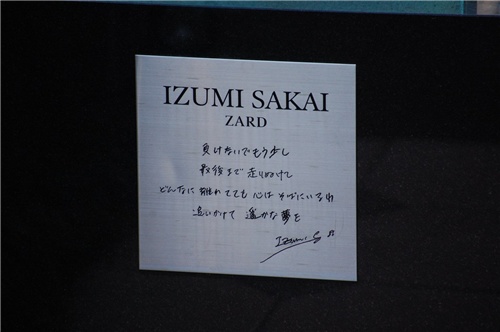 IZUMI SAKAI
ZARD
負けないでもう少し
最後まで走りぬけて
どんなに離れてても心はそばにいるわ
追いかけて遥かな夢を
Izumi S